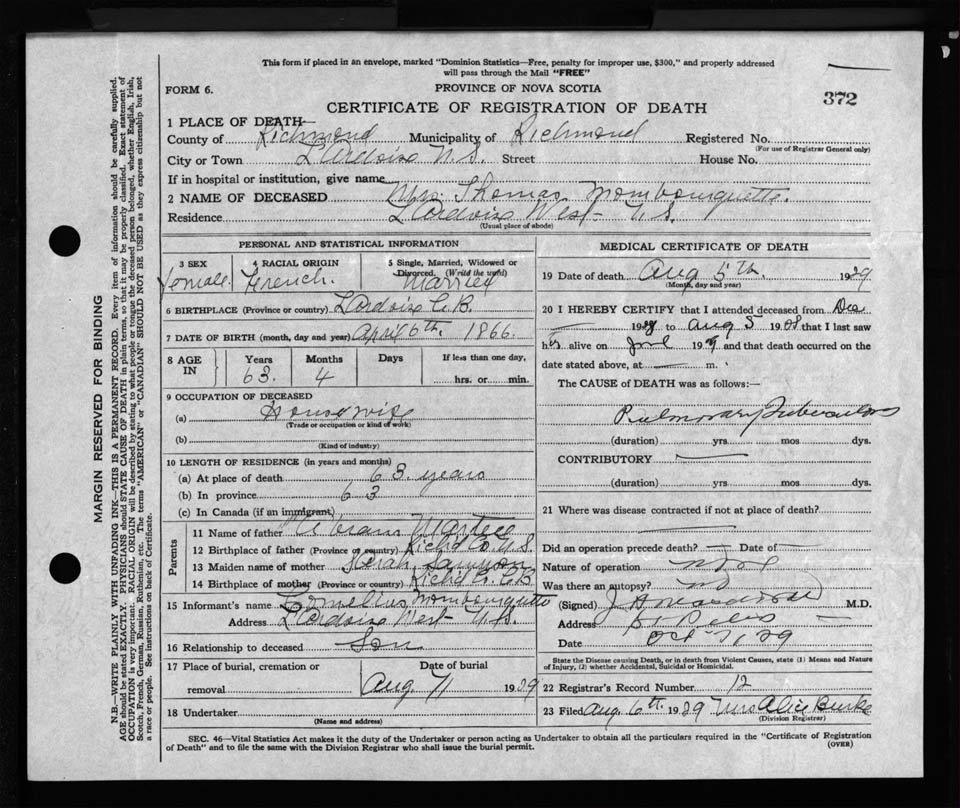 This form if placed in an envelope, marked "Dominion Statistics—Free, penalty for improper use, $300," and properly addressed
will pass through the Mail "FREE"
FORM 6.
PROVINCE OF NOVA SCOTIA
372
CERTIFICATE OF REGISTRATION OF DEATH
1 PLACE OF DEATH—
County of Richmond Municipality of Richmond Registered No.
(For use of Registrar General only)
City or Town L'Ardoise N.S. Street House No.
If in hospital or institution, give name
2 NAME OF DECEASED Mrs. Thomas Mombourquette.
Residence L'Ardoise West N.S.
(Usual place of abode)
PERSONAL AND STATISTICAL INFORMATION
3 SEX 4 RACIAL ORIGIN 5 Single, Married, Widowed or
Divorced. (Write the word)
Female. French. Married
6 BIRTHPLACE (Province or country) L'Ardoise C.B.
7 DATE OF BIRTH (month, day and year) April 6th. 1866.
8 AGE IN Years Months Days If less than one day,
63. 4 hrs. or min.
9 OCCUPATION OF DECEASED
(a) Housewife
(Trade or occupation or kind of work)
(b)
(Kind of industry)
10 LENGTH OF RESIDENCE (in years and months)
(a) At place of death 63 years
(b) In province 63
(c) In Canada (if an immigrant)
Parents
11 Name of father Abram Martell
12 Birthplace of father (Province or country) Richd Co. N.S.
13 Maiden name of mother Sarah Sampson
14 Birthplace of mother (Province or country) Richd Co. C.B
15 Informant's name Cornelius Mombourquette
Address L'Ardoise West N.S.
16 Relationship to deceased Son
17 Place of burial, cremation or Date of burial
removal Aug 7 1929
18 Undertaker
(Name and address)
MEDICAL CERTIFICATE OF DEATH
19 Date of death Aug 5th. 1929
(Month, day and year)
20 I HEREBY CERTIFY that I attended deceased from Dec
19 to Aug 3 19 that I last saw
h alive on 19 and that death occurred on the
date stated above, at m.
The CAUSE of DEATH was as follows:
Pulmonary Tuberculosis
(duration) yrs mos dys.
CONTRIBUTORY
(duration) yrs mos dys.
21 Where was disease contracted if not at place of death?
Did an operation precede death? Date of
Nature of operation
Was there an autopsy? no
(Signed) M.D.
Address St Peters
Date Oct 29
State the Disease causing Death, or in death from Violent Causes, state (1) Means and Nature
of Injury, (2) whether Accidental, Suicidal or Homicidal.
22 Registrar's Record Number 12
23 Filed Aug 6th. 1929 Mrs Alice Burke
(Division Registrar)
SEC. 46—Vital Statistics Act makes it the duty of the Undertaker or person acting as Undertaker to obtain all the particulars required in the "Certificate of Registration
of Death" and to file the same with the Division Registrar who shall issue the burial permit.
(OVER)
MARGIN RESERVED FOR BINDING
N.B.—WRITE PLAINLY WITH UNFADING INK—THIS IS A PERMANENT RECORD. Every item of information should be carefully supplied.
AGE should be stated EXACTLY. PHYSICIANS should STATE CAUSE OF DEATH in plain terms, so that it may be properly classified. Exact statement of
OCCUPATION is very important. RACIAL ORIGIN will be described by stating to what people or tongue the deceased person belonged, whether English, Irish,
Scotch, French, German, Russian, Ruthenian, etc. The terms "AMERICAN" or "CANADIAN" SHOULD NOT BE USED as they express citizenship but not
a race or people. See instructions on back of Certificate.